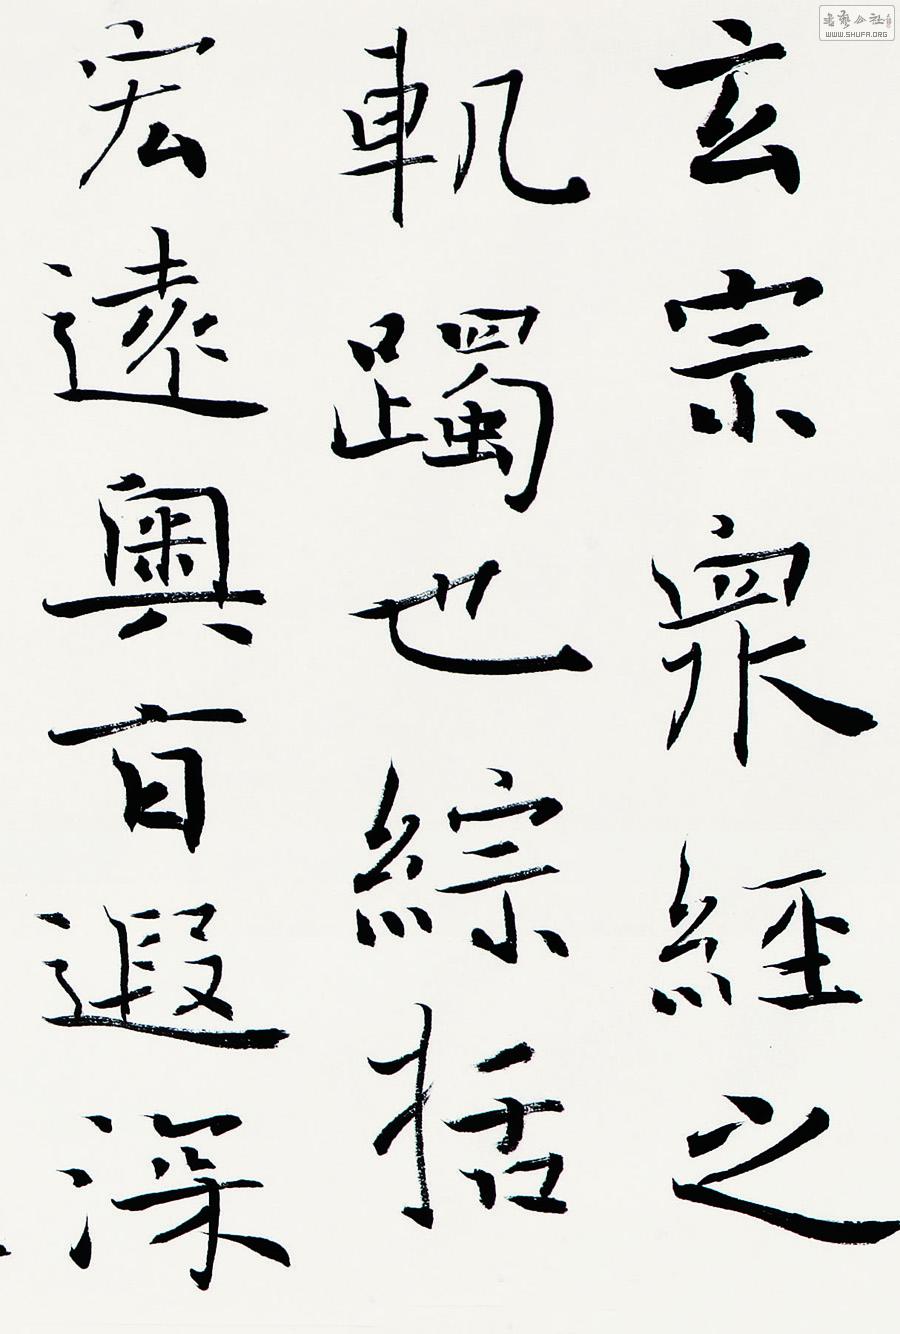 玄宗衆經之
軌躅也綜括
宏遠奧旨遐深
書藝公社
WWW.SHUFA.ORG